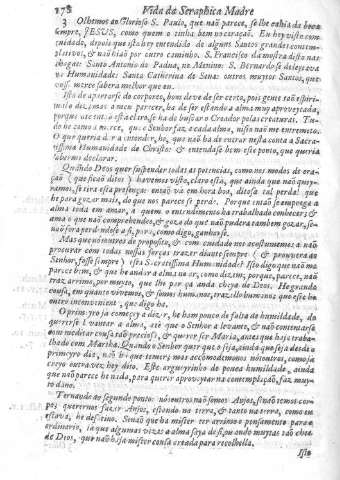 178 Vida da Seraphica Madre
3 Olhemos ao Glorioso S. Paulo, que não parece, se lhe cahia da boca
sempre, JESUS, como quem o tinha bem no coração. Eu hey visto com
cuidado, depois que isto hey entendido de alguns Santos grandes contem-
plativos, & não hião por outro caminho. S. Francisco dá mostra disto nas
chagas: Santo Antonio de Padua, no Minino: S. Bernardo se deleytava
na Humanidade: Santa Catherina de Sena: outros muytos Santos, que
voss. merce saberá melhor que eu.
Isto de apartarse do corporeo, bom deve de ser certo, pois gente tão espiri-
tual o diz, mas a meu parecer, ha de ser estando a alma muy aproveytada,
porque até então está claro, se ha de buscar o Creador polas creaturas. Tu-
do he como a merce, que o Senhor faz, a cada alma, nisso não me entremeto.
O que queria dar a entender, he, que não ha de entrar nesta conta a Sacra-
tissima Humanidade de Christo: & entendase bem este ponto, que queria
saberme declarar.
Quando Deos quer suspender todas as potencias, como nos modos de ora-
ção (que ficão ditos) havemos visto, claro está, que ainda que não quey-
ramos, se tira esta presença: então vá em hora boa, ditosa tal perda! que
he para gozar mais, do que nos parece se perde. Porque então se emprega a
alma toda em amar, a quem o entendimento ha trabalhado conhecer; &
ama o que não comprehendeo, & goza do que não pudera tambem gozar, se
não fora perdendose a si, para, como digo, ganharse.
Mas que nós outros de proposito, & com cuidado nos acostumemos a não
procurar com todas nossas forças trazer diante sempre (& prouvera ao
Senhor, fosse sempre) esta Sacratissima Humanidade: Isto digo que não me
parece bem, & que he andar a alma no ar, como dizem; porque, parece, não
traz arrimo, por muyto, que lhe pareça anda cheya de Deos. He grande
cousa, em quanto vivemos, & somos humanos, trazello humano: que esse he o
outro inconveniente, que digo ha.
O primeyro ja começey a dizer, he hum pouco de falta de humildade, de
quererse levantar a alma, até que o Senhor a levante, & não contentarse
com meditar cousa tão preciosa, & querer ser Maria, antes que haja traba-
lhado com Martha. Quando o Senhor quer que o seja, ainda que seja desde o
primeyro dia, não ha que temer; mas accomodemonos nósoutros, como ja
creyo outra vez hey dito. Este argueyrinho de pouca humildade, ainda
que não parece he nada, para querer aproveytar na contemplação, faz muy-
to dano.
Tornando ao segundo ponto: nósoutros não somos Anjos, senão temos cor-
po: querernos fazer Anjos, estando na terra, & tanto na terra, como eu
estava, he desatino. Senão que ha mister ter arrimo o pensamento para o
ordinario, ja que algumas vezes a alma saya de si, ou ande muytas tão chea
de Deos, que não haja mister cousa creada para recolhella.
Isto